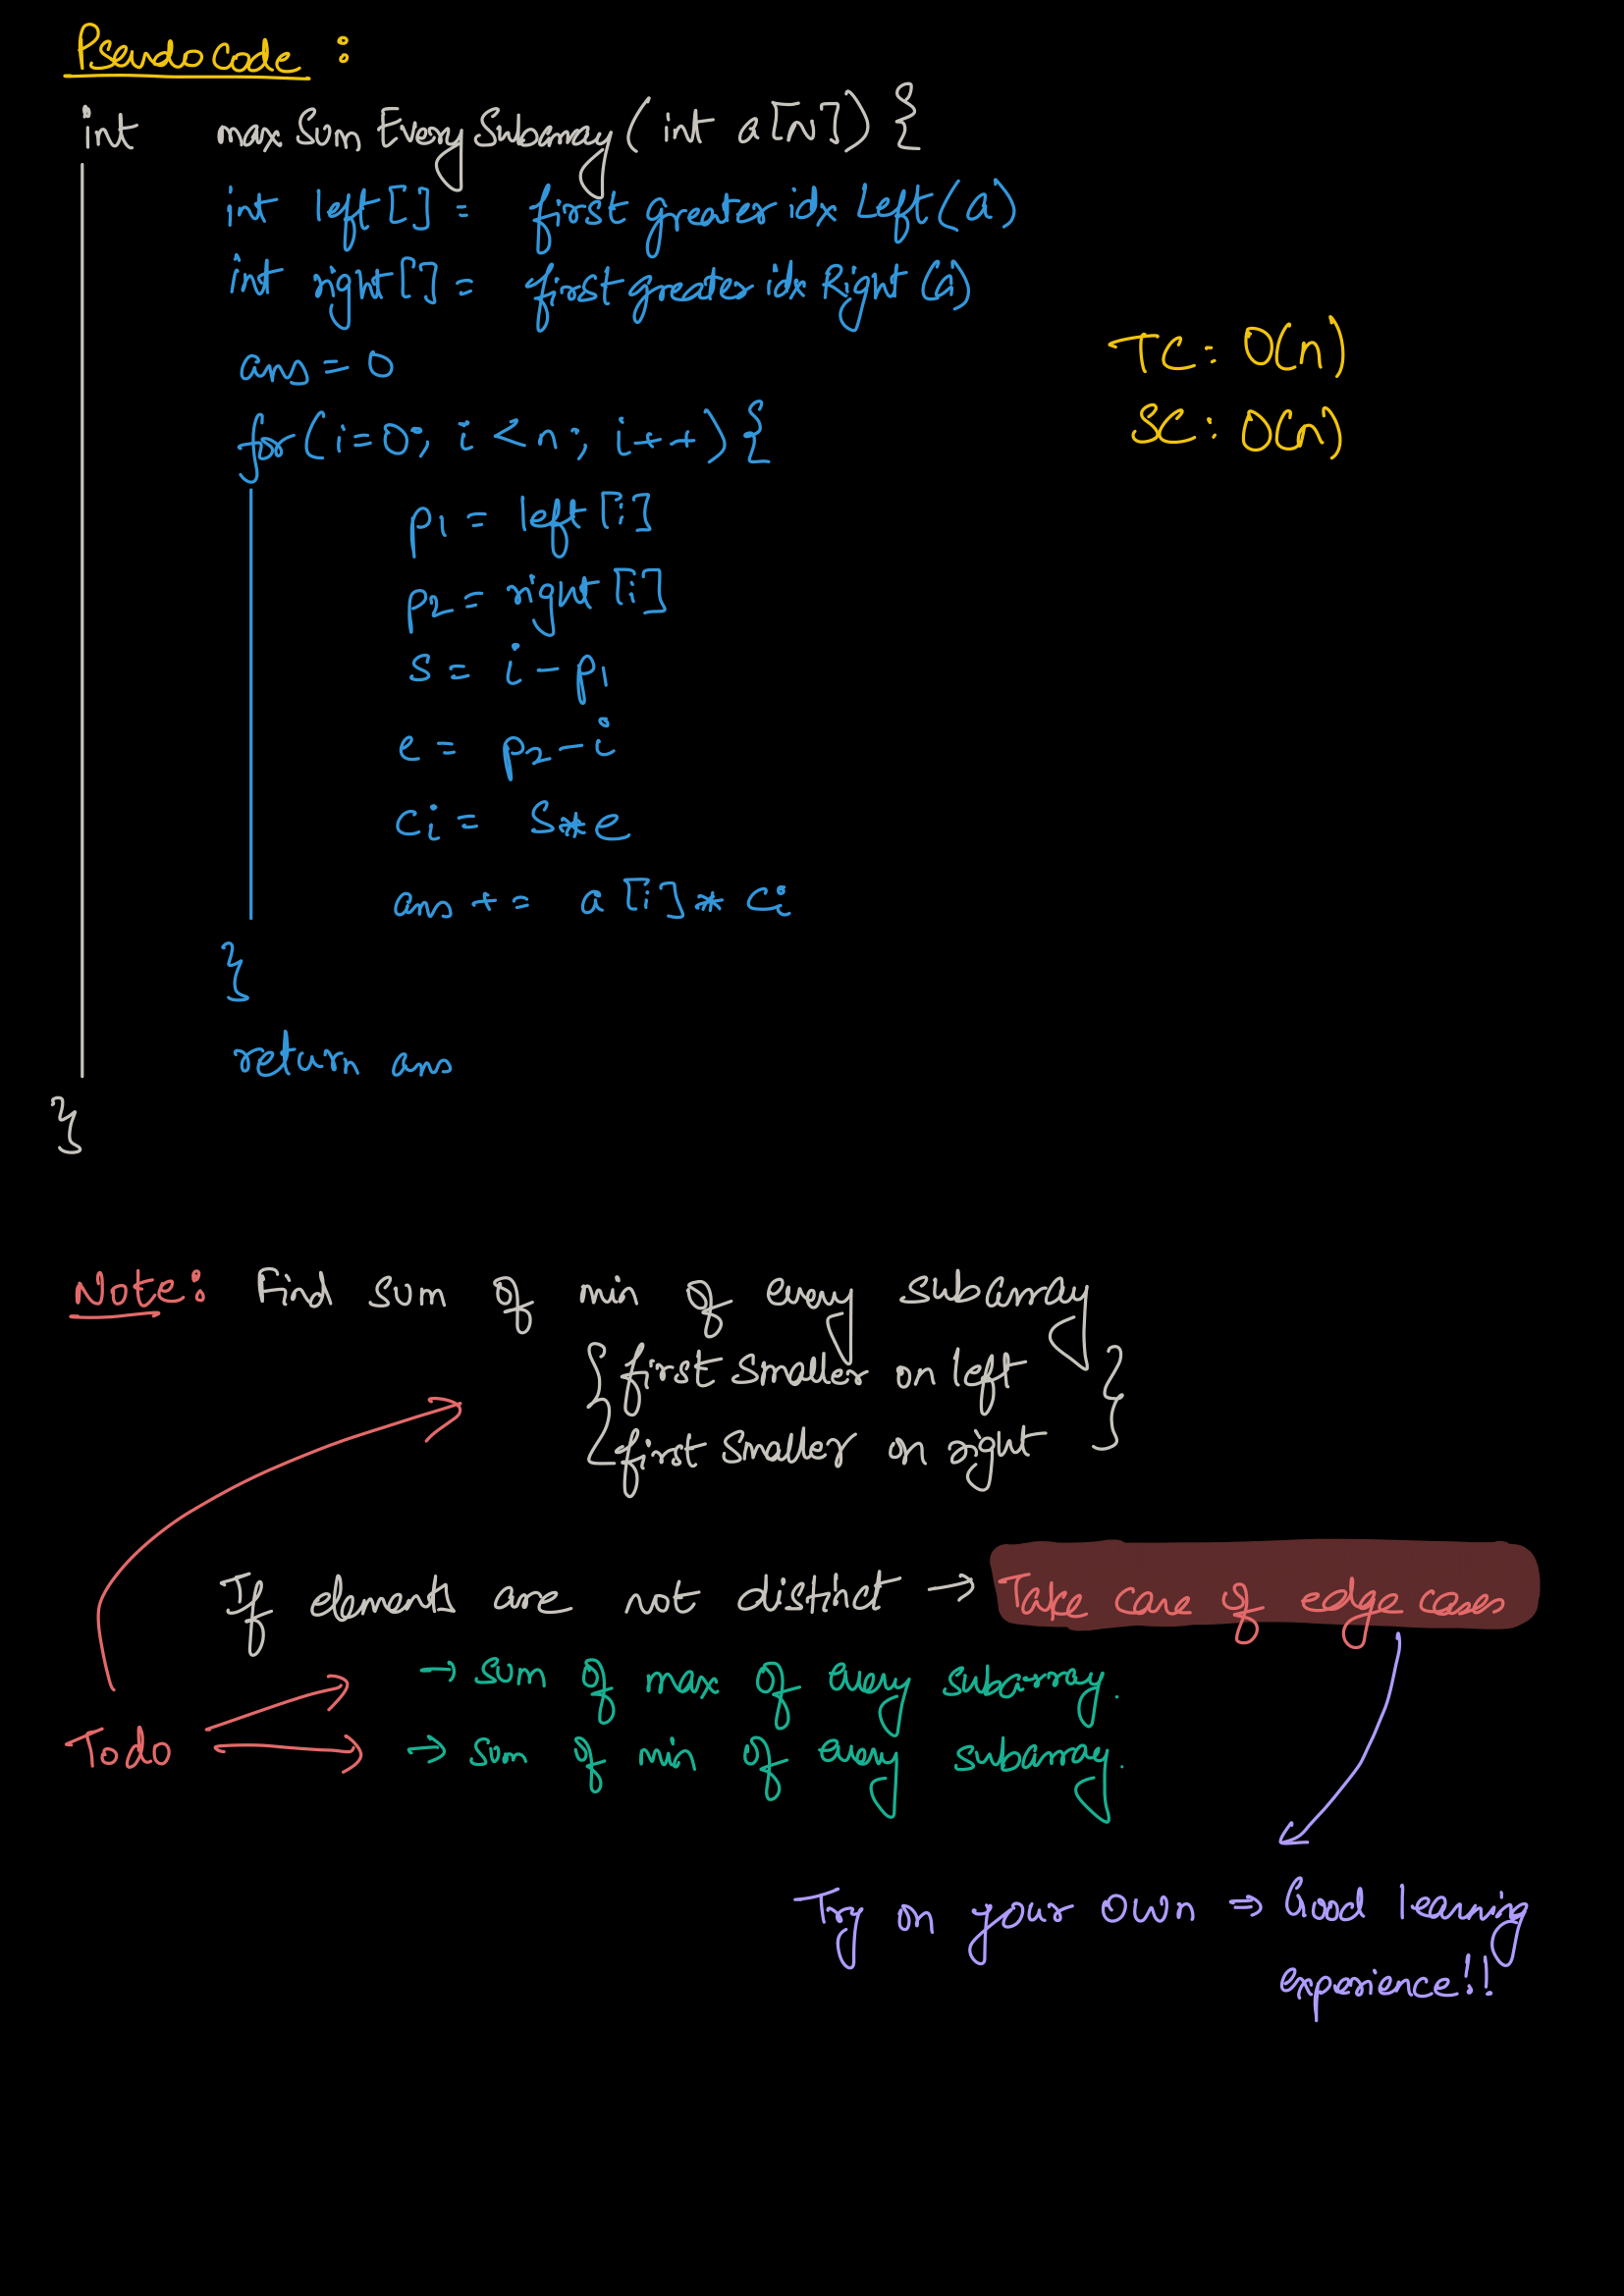 Pseudo code :
int max Sum Every Subarray ( int a[N]) {
int left[] = first greater idx Left (a)
int right[] = first greater idx Right (a)
ans = 0
TC : O(n)
for (i=0; i<n; i++) {
SC : O(n)
p1 = left [i]
p2 = right [i]
s = i - p1
e = p2 - i
ci = s*e
ans += a [i] * ci
}
return ans
}
Note: Find sum of min of every subarray
{ first smaller on left }
{ first smaller on right }
If elements are not distinct → Take care of edge cases
→ sum of max of every subarray.
Todo → sum of min of every subarray.
Try on your own ⇒ Good learning
experience!!